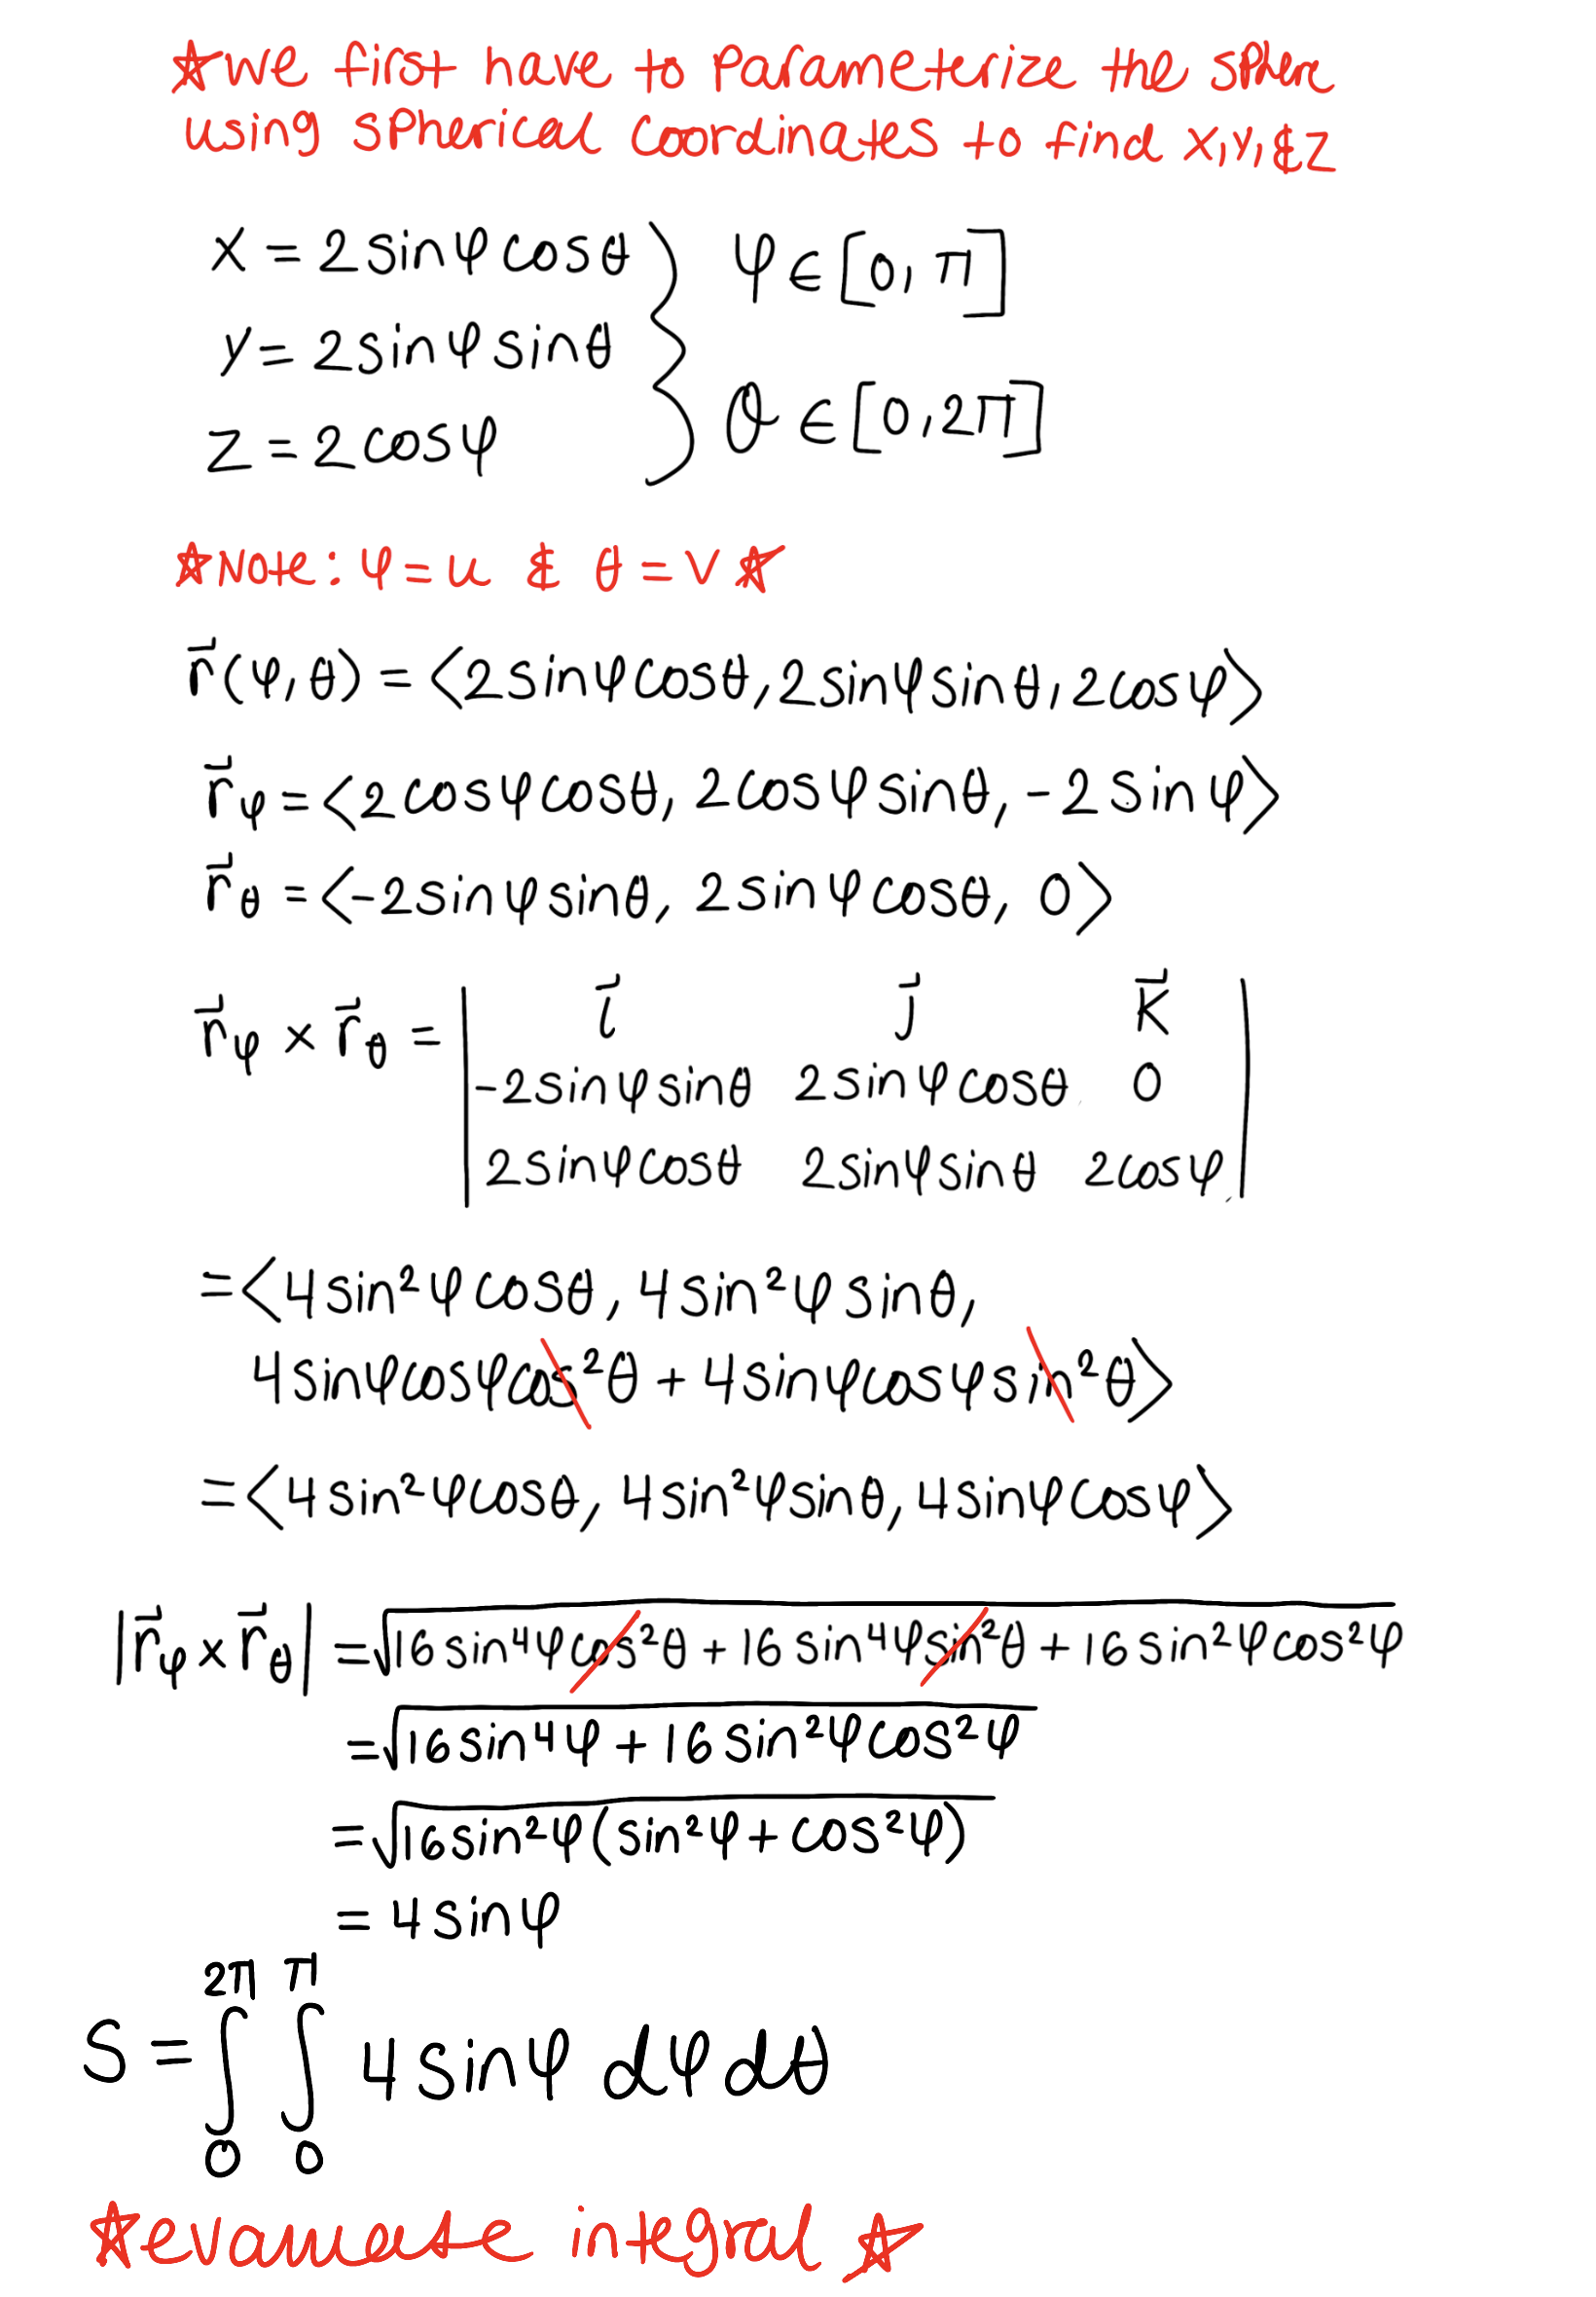 ☆We first have to parameterize the sphere
using spherical coordinates to find x, y, & z
x = 2sinφcosθ
y = 2sinφsinθ
z = 2cosφ
φ∈[0, π]
θ∈[0, 2π]
☆Note: φ=u & θ=v☆
r⃗(φ,θ) = ⟨2sinφcosθ, 2sinφsinθ, 2cosφ⟩
r⃗φ = ⟨2cosφcosθ, 2cosφsinθ, -2sinφ⟩
r⃗θ = ⟨-2sinφsinθ, 2sinφcosθ, 0⟩
r⃗φ × r⃗θ = | i⃗ j⃗ k⃗ |
| -2sinφsinθ 2sinφcosθ 0 |
| 2sinφcosθ 2sinφsinθ 2cosφ |
= ⟨4sin²φcosθ, 4sin²φsinθ,
4sinφcosφcos²θ + 4sinφcosφsin²θ⟩
= ⟨4sin²φcosθ, 4sin²φsinθ, 4sinφcosφ⟩
|r⃗φ × r⃗θ| = √(16sin⁴φcos²θ + 16sin⁴φsin²θ + 16sin²φcos²φ)
= √(16sin⁴φ + 16sin²φcos²φ)
= √(16sin²φ(sin²φ + cos²φ))
= 4sinφ
S = ∫₀^2π ∫₀^π 4sinφ dφdθ
☆evaluate integral☆